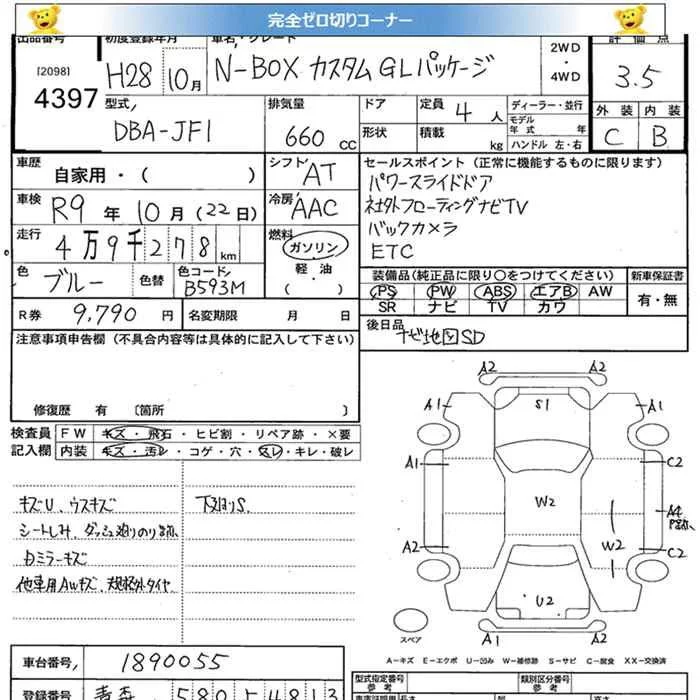 完全ゼロ切りコーナー
出品番号 初度登録年月 車名・グレード 2WD・4WD 評価点
[2098] 4397 H28 10月 N-BOX カスタムGLパッケージ 3.5
型式 DBA-JF1 排気量 660 CC ドア 定員 4 人 ディーラー・並行 外装 内装
形状 積載 kg モデル年式 年 ハンドル 左・右 C B
車歴 自家用・( ) シフト AT セールスポイント(正常に機能するものに限ります)
車検 R9 年 10 月 (22 日) 冷房 AAC パワースライドドア
社外フローティングナビTV
走行 4万9千278 km 燃料 ガソリン バックカメラ
軽油 ( ) ETC
色 ブルー 色替 色コード B593M 装備品(純正品に限り○をつけてください) 新車保証書
PS PW ABS エアB AW 有・無
SR ナビ TV カワ
R券 9,790 円 名変期限 月 日 後日品
ナビ地図SD
注意事項申告欄(不具合内容等は具体的に記入して下さい)
修復歴 有 〔箇所 〕
検査員 FW キズ・飛石・ヒビ割・リペア跡・×要
記入欄 内装 キズ・汚レ・コゲ・穴・スレ・キレ・破レ
キズU、ウスキズ 下廻りS
シートしみ、ダッシュ廻りのり跡、
カミラーキズ
他車用AWキズ、規格外タイヤ
A2 A2
A1 S1 A1
A1 C2
W2 A4
P跡、
A2 W2 C2
U2
スペア A1 A2
A-キズ E-エクボ U-凹み W-補修跡 S-サビ C-腐食 XX-交換済
車台番号 1890055 型式指定番号 参考 類別区分番号 参考
登録番号 青森 580 し 4813 kg